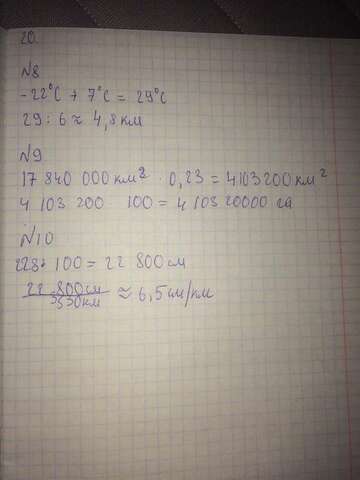 20.
N8
-22°C + 7°C = 29°C
29 : 6 ≈ 4,8 км
N9
17 840 000 км² · 0,23 = 4103200 км²
4 103 200 100 = 4 103 20000 га
N10
228 · 100 = 22 800 см
22 800 см
3530 км ≈ 6,5 см/км